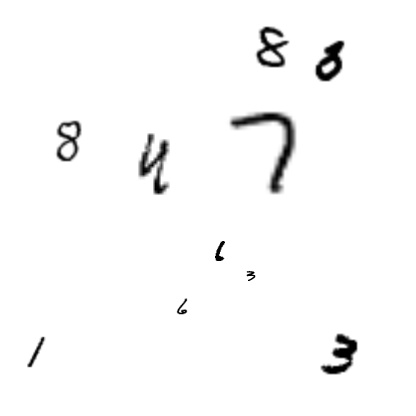 8 8
8 4 7
6
3
6
1 3